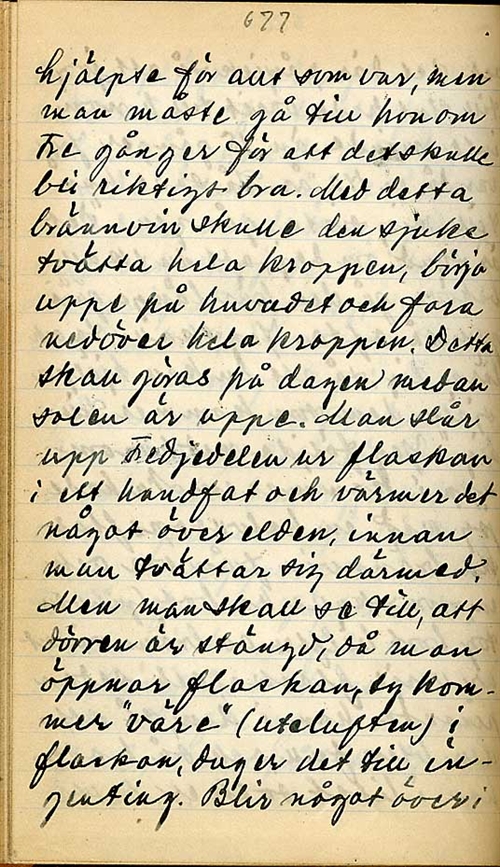 677
hjälpte för allt som var, men
man måste gå till honom
tre gånger för att det skulle
bli riktigt bra. Med detta
brännvin skulle den sjuke
tvätta hela kroppen, börja
uppe på huvudet och fara
nedöver hela kroppen. Detta
skall göras på dagen medan
solen är uppe. Man slår
upp tredjedelen ur flaskan
i ett handfat och värmer det
något över elden, innan
man tvättar sig därmed.
Men man skall se till, att
dörren är stängd, då man
öppnar flaskan, ty kom-
mer "väre" (uteluften) i
flaskan, duger det till in-
genting. Blir något över i